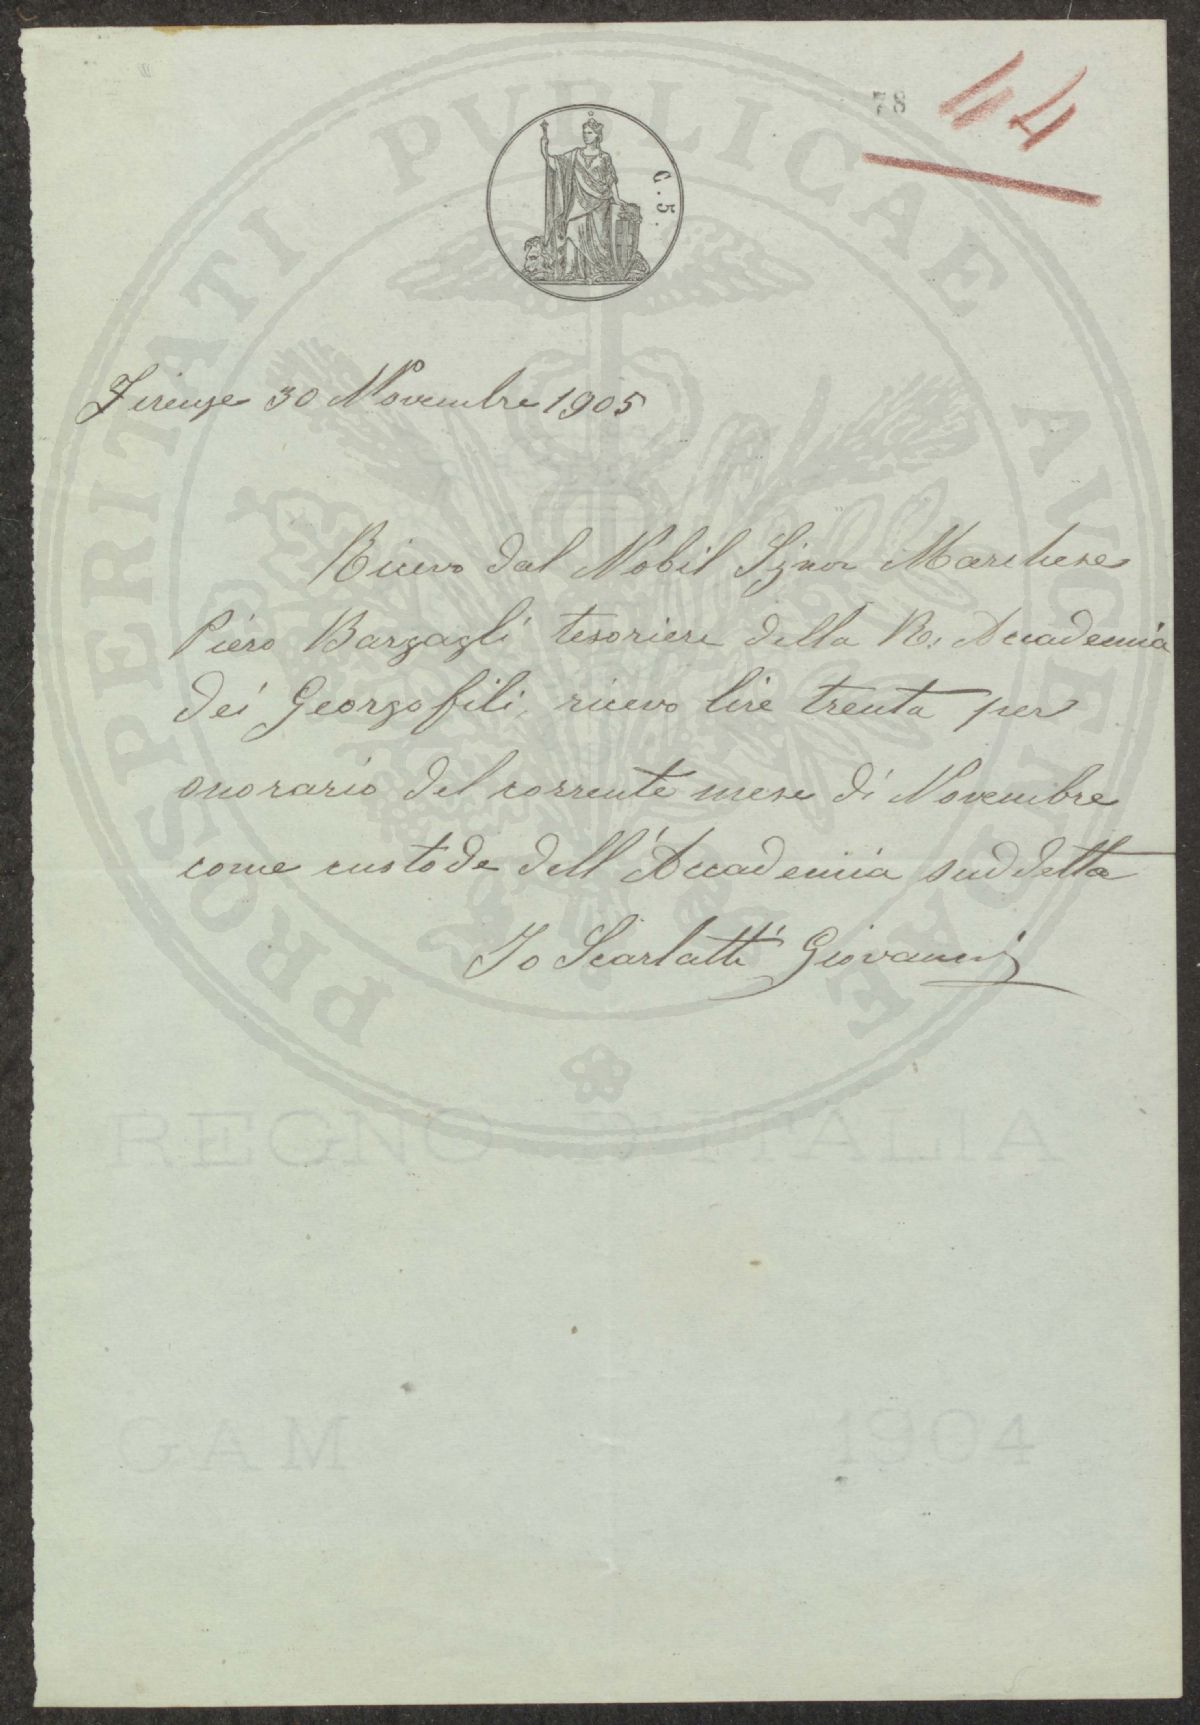 78
44
C. 5.
PROSPERITATI PUBLICAE AVGENDAE
Firenze 30 Novembre 1905
Ricevo dal Nobil Signor Marchese
Piero Bargagli tesoriere della R. Accademia
dei Georgofili, ricevo lire trenta per
onorario del corrente mese di Novembre
come custode dell'Accademia suddetta
Io Scarlatti Giovanni
REGNO D'ITALIA
GAM 1904